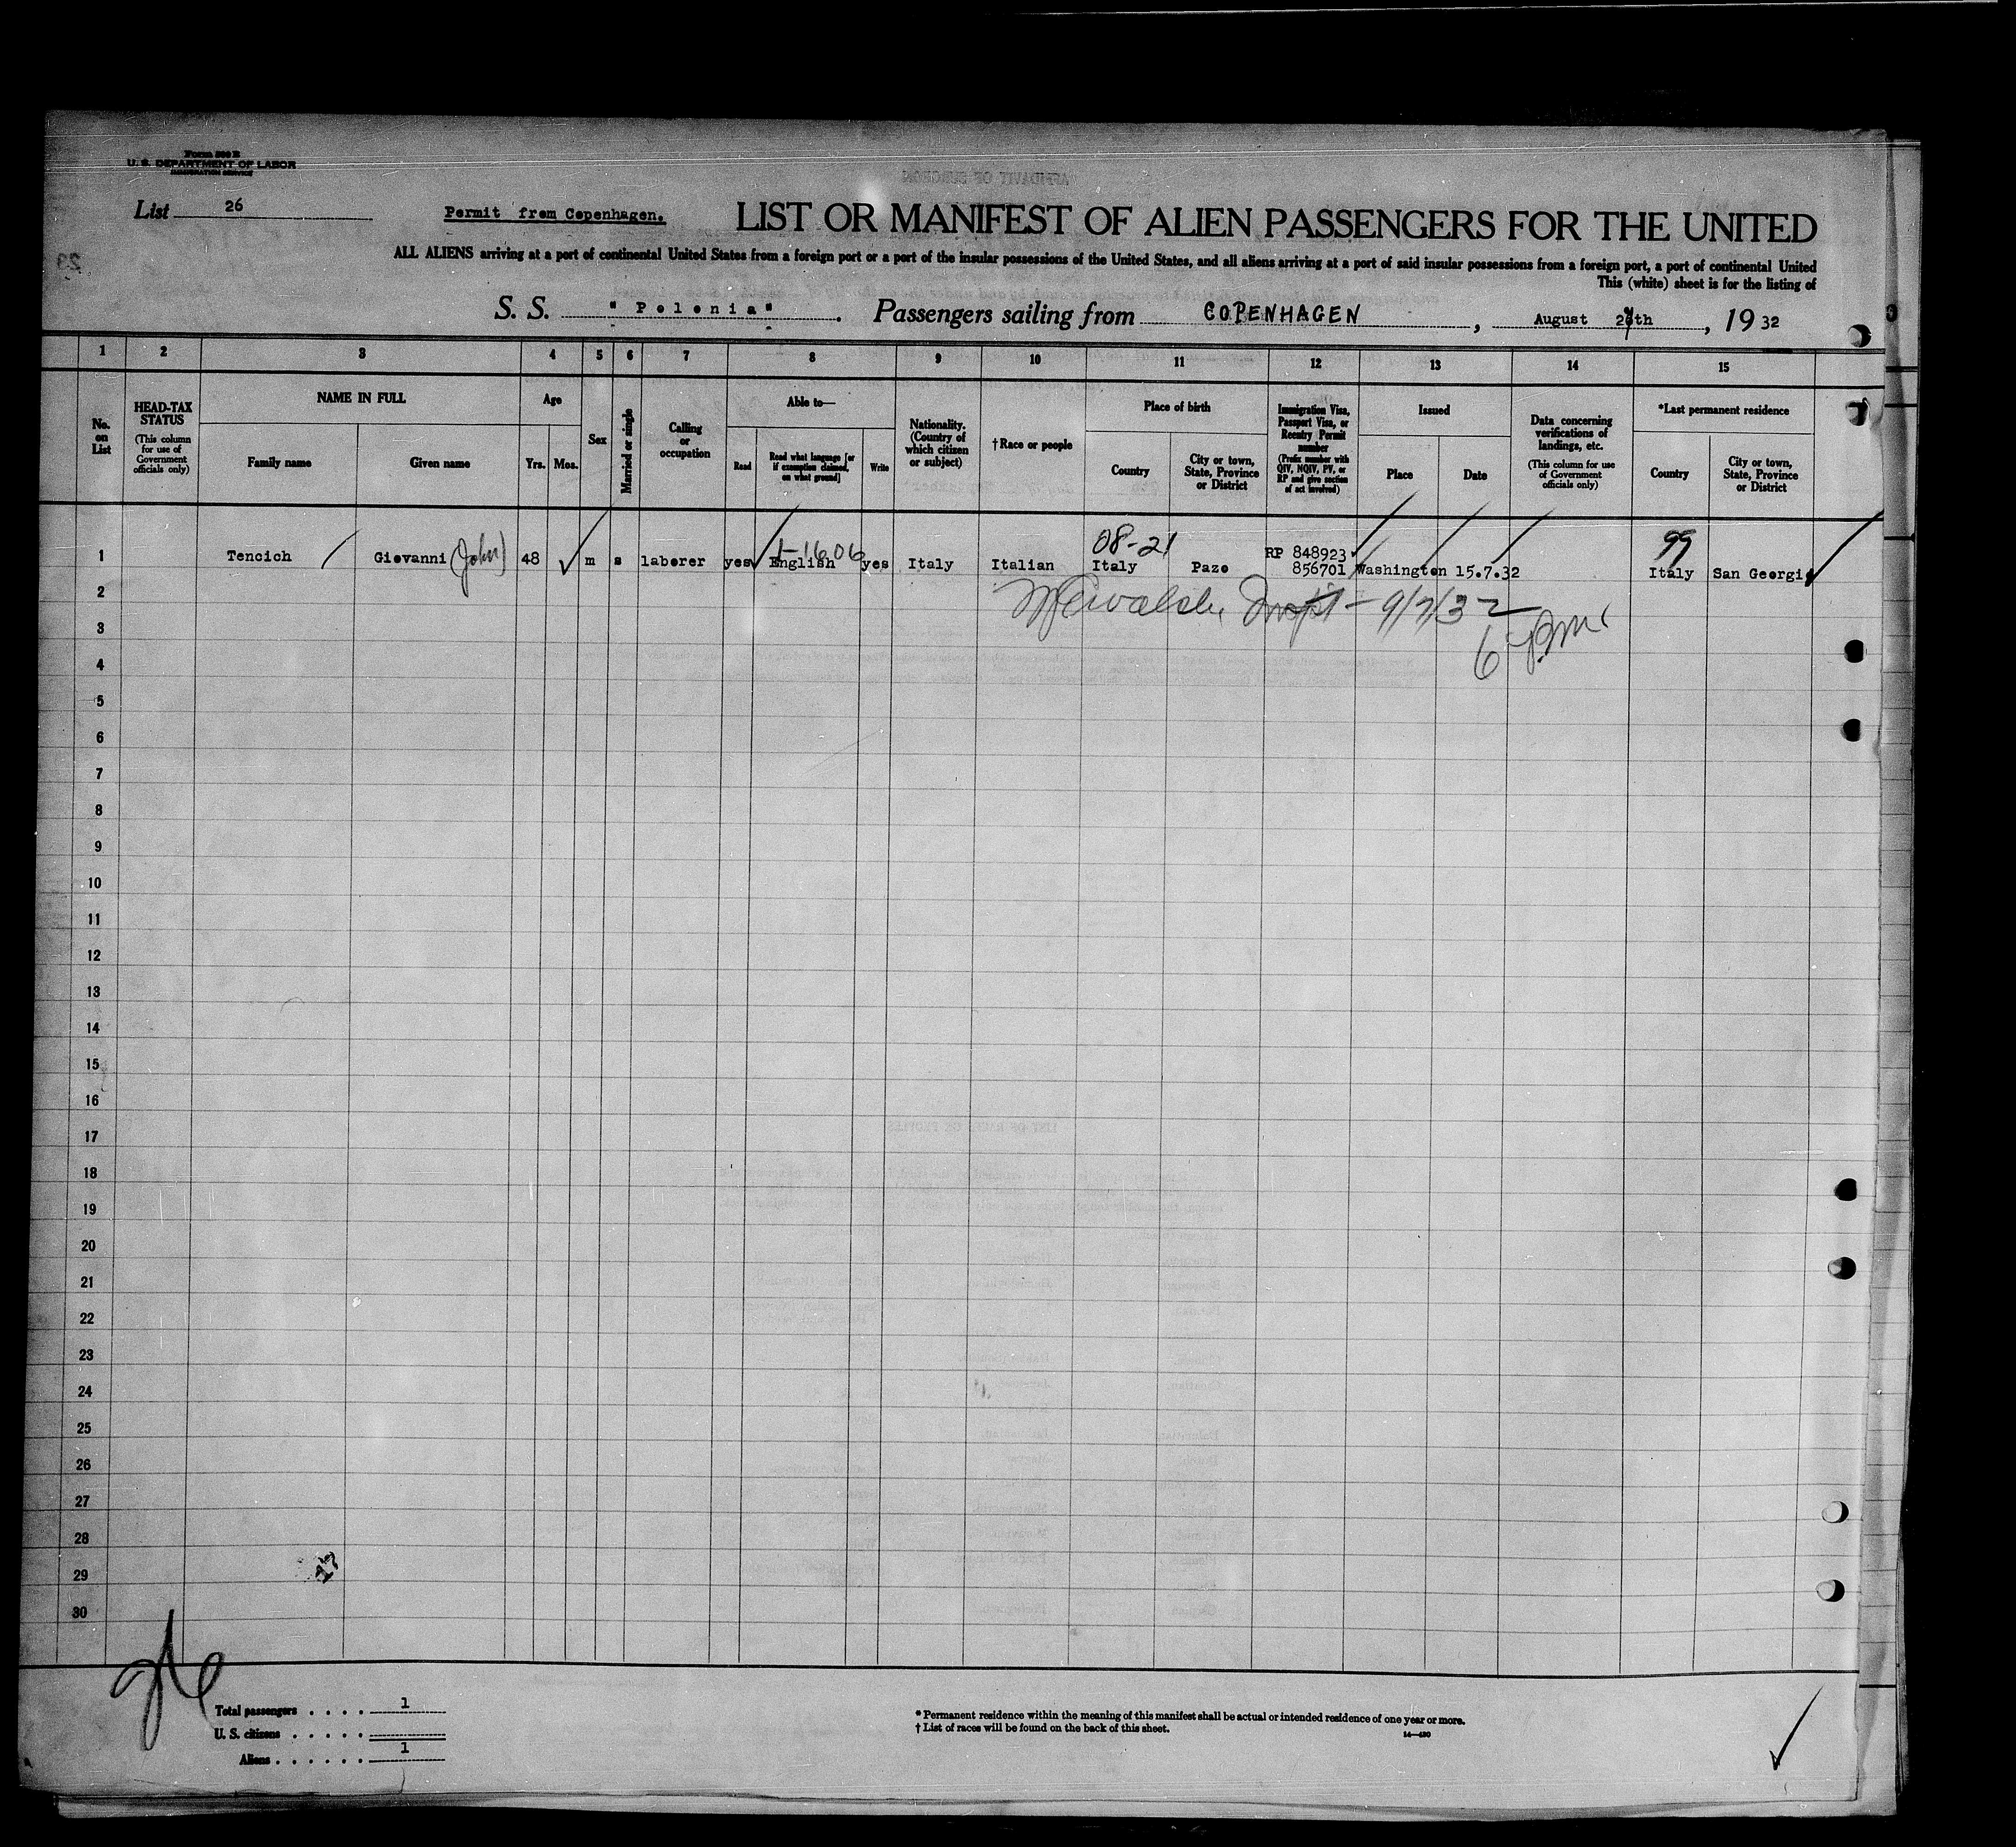 Form 500 B
U. S. DEPARTMENT OF LABOR
IMMIGRATION SERVICE
List 26
Permit from Copenhagen.
LIST OR MANIFEST OF ALIEN PASSENGERS FOR THE UNITED
ALL ALIENS arriving at a port of continental United States from a foreign port or a port of the insular possessions of the United States, and all aliens arriving at a port of said insular possessions from a foreign port, a port of continental United
This (white) sheet is for the listing of
S. S. "Polonia". Passengers sailing from COPENHAGEN, August 27th, 1932
1 2 3 4 5 6 7 8 9 10 11 12 13 14 15
No. on List
HEAD-TAX STATUS
(This column for use of Government officials only)
NAME IN FULL
Family name
Given name
Age
Yrs. Mos.
Sex
Married or single
Calling or occupation
Able to—
Read
Read what language [or if exemption claimed, on what ground]
Write
Nationality. (Country of which citizen or subject)
†Race or people
Place of birth
Country
City or town, State, Province or District
Immigration Visa, Passport Visa, or Reentry Permit number
(Prefix number with QIV, NQIV, PV, or RP and give section of act involved)
Issued
Place
Date
Data concerning verifications of landings, etc.
(This column for use of Government officials only)
*Last permanent residence
Country
City or town, State, Province or District
08-21
99
1-1606
1 Tencich Giovanni (John) 48 m s laborer yes English yes Italy Italian Italy Pazo RP 848923 856701 Washington 15.7.32 Italy San Georgi
9/7/32
6 pm
2
3
4
5
6
7
8
9
10
11
12
13
14
15
16
17
18
19
20
21
22
23
24
25
26
27
28
29
30
Total passengers . . . . 1
U. S. citizens . . . . .
Aliens . . . . . . 1
* Permanent residence within the meaning of this manifest shall be actual or intended residence of one year or more.
† List of races will be found on the back of this sheet.
14—430